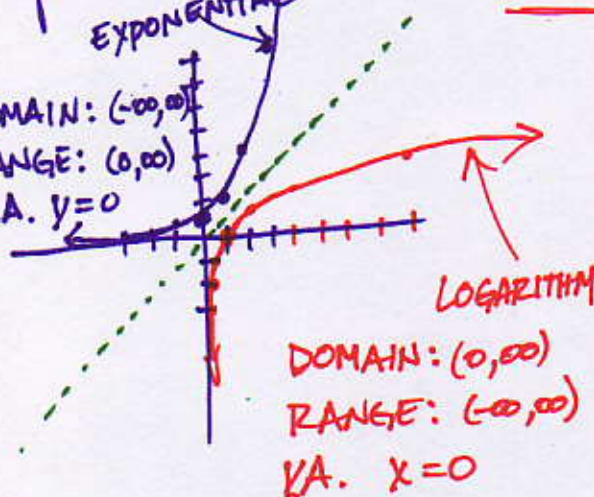 EXPONENTIAL
MAIN: (-∞,∞)
ANGE: (0,∞)
A. y=0
LOGARITHM
DOMAIN: (0,∞)
RANGE: (-∞,∞)
V.A. X=0